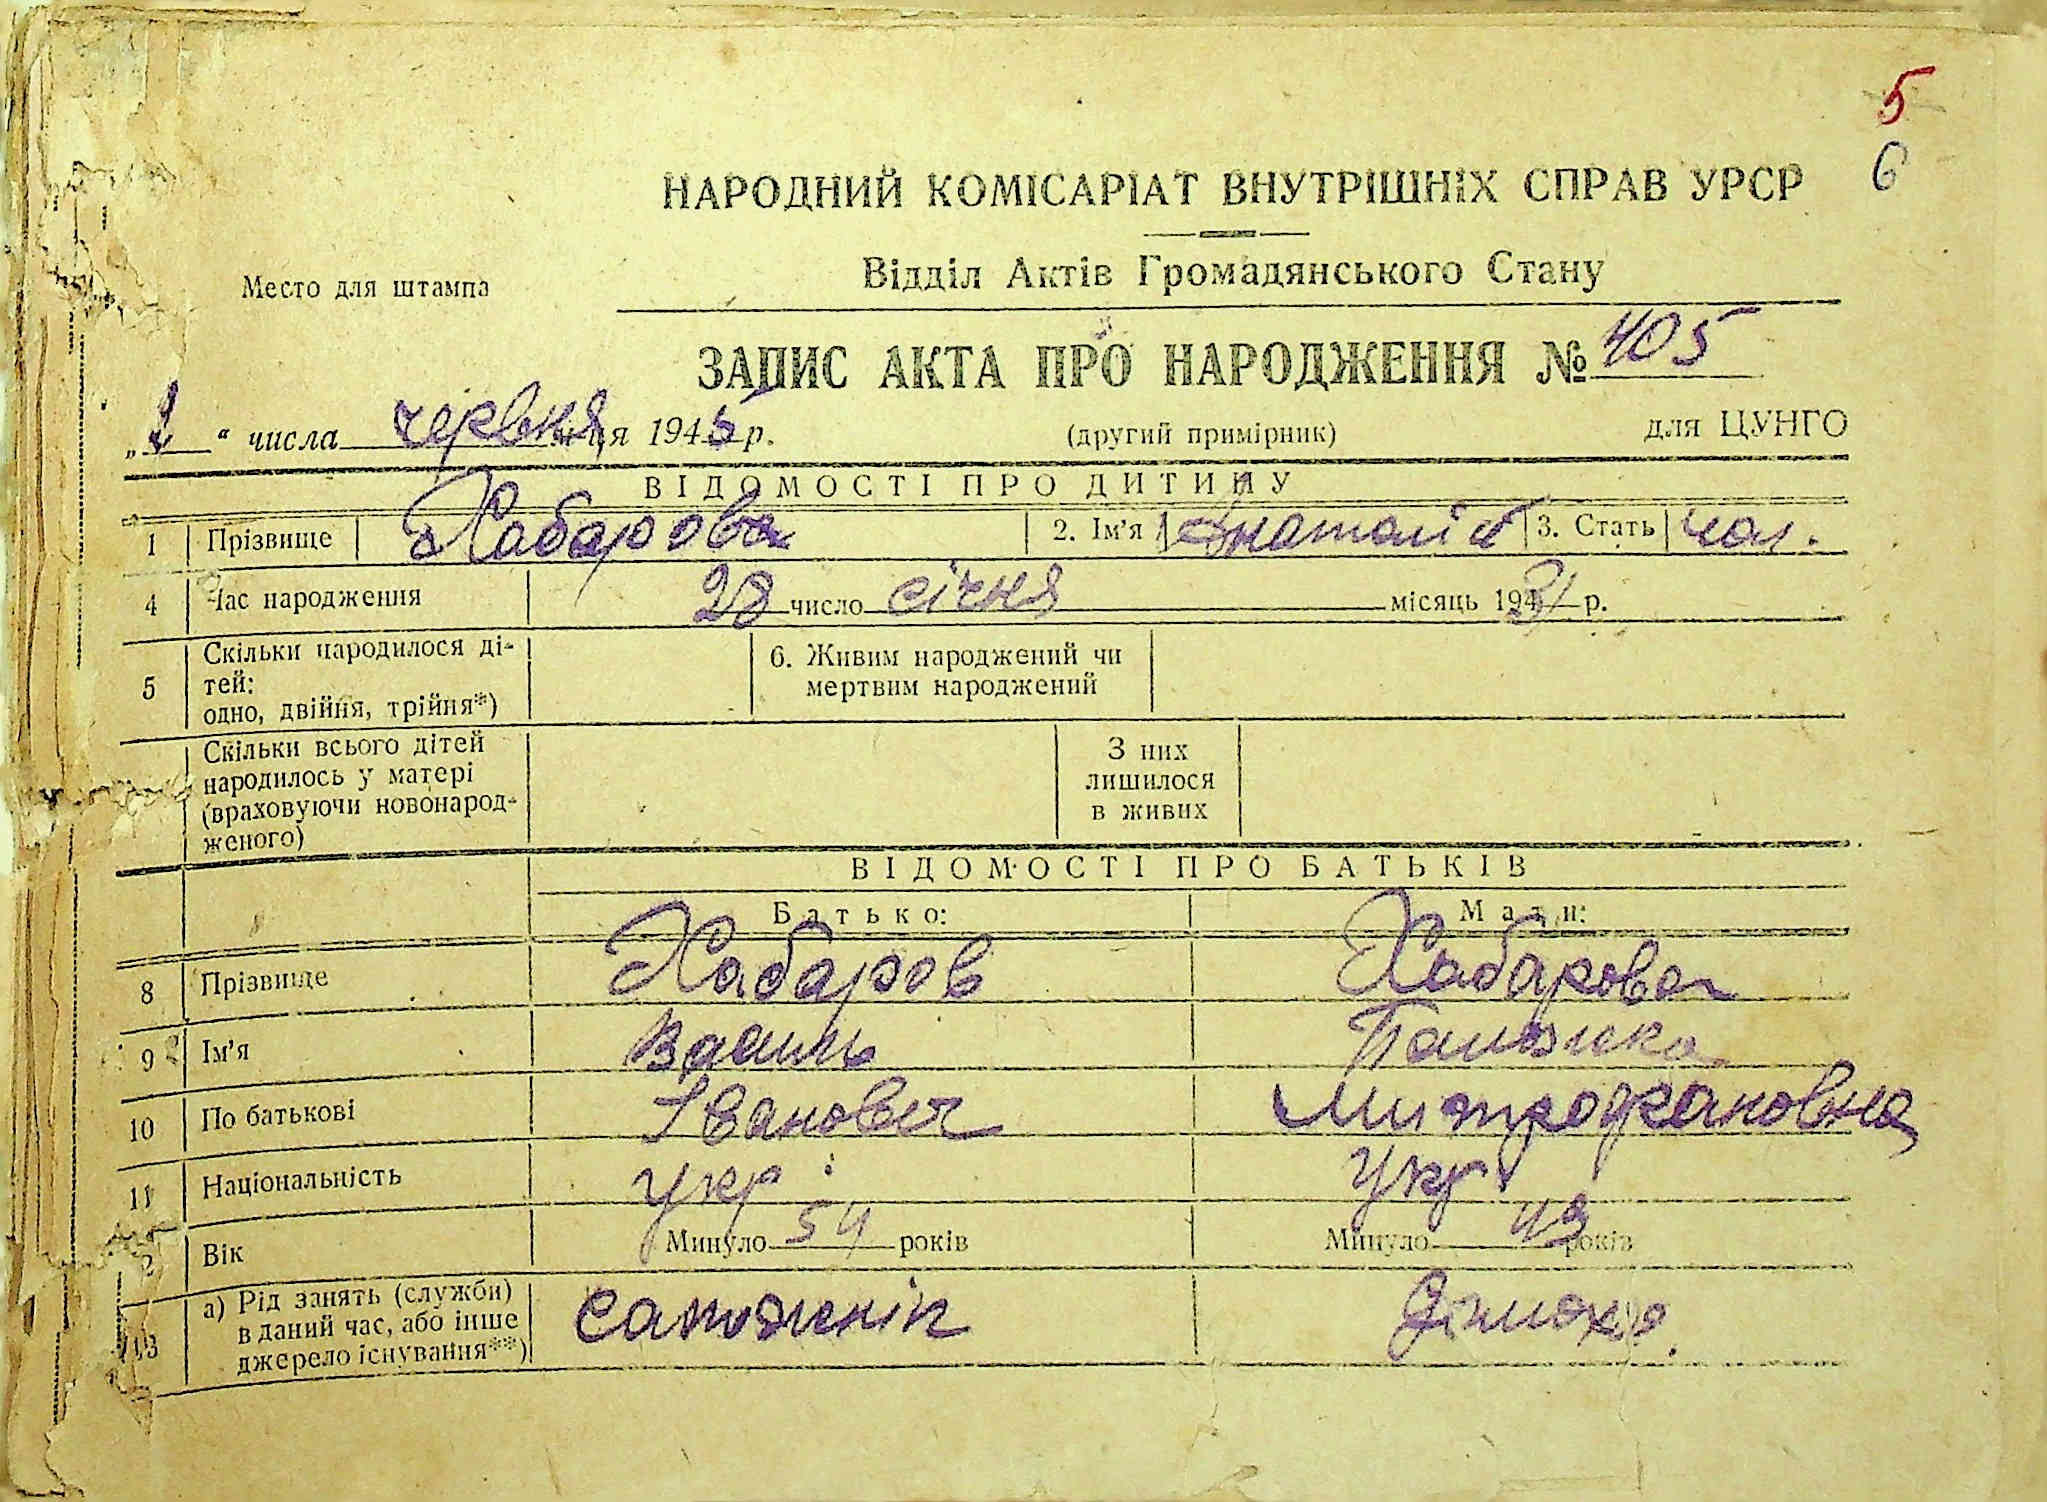 5
6
НАРОДНИЙ КОМІСАРІАТ ВНУТРІШНІХ СПРАВ УРСР
Відділ Актів Громадянського Стану
Место для штампа
ЗАПИС АКТА ПРО НАРОДЖЕННЯ № 405
„ “ числа червня ця 1945 р. (другий примірник) для ЦУНГО
ВІДОМОСТІ ПРО ДИТИНУ
1 Прізвище Хабарова 2. Ім'я Анатолій 3. Стать чол.
4 Час народження 28 число січня місяць 194 р.
5 Скільки народилося ді-
тей:
одно, двійня, трійня*)
6. Живим народжений чи
мертвим народжений
Скільки всього дітей
народилось у матері
(враховуючи новонарод-
женого)
З них
лишилося
в живих
ВІДОМОСТІ ПРО БАТЬКІВ
Батько: Мати:
8 Прізвище Хабаров Хабарова
9 Ім'я Василь
10 По батькові Іванович Митрофановна
11 Національність укр. Укр.
2 Вік Минуло 54 років Минуло 43 років
13 а) Рід занять (служби)
в даний час, або інше
джерело існування**)
сапожнік домохоз.